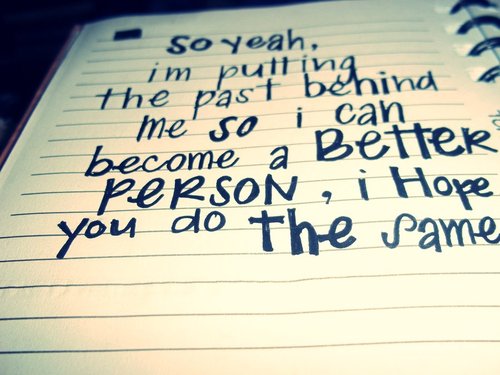 so yeah,
im putting
the past behind
me so i can
become a BETTER
PERSON, i Hope
you do the same